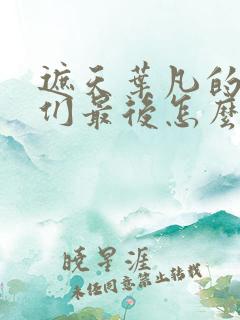 遮天葉凡的
们最後怎麼
曉星涯
未经同意禁止转载